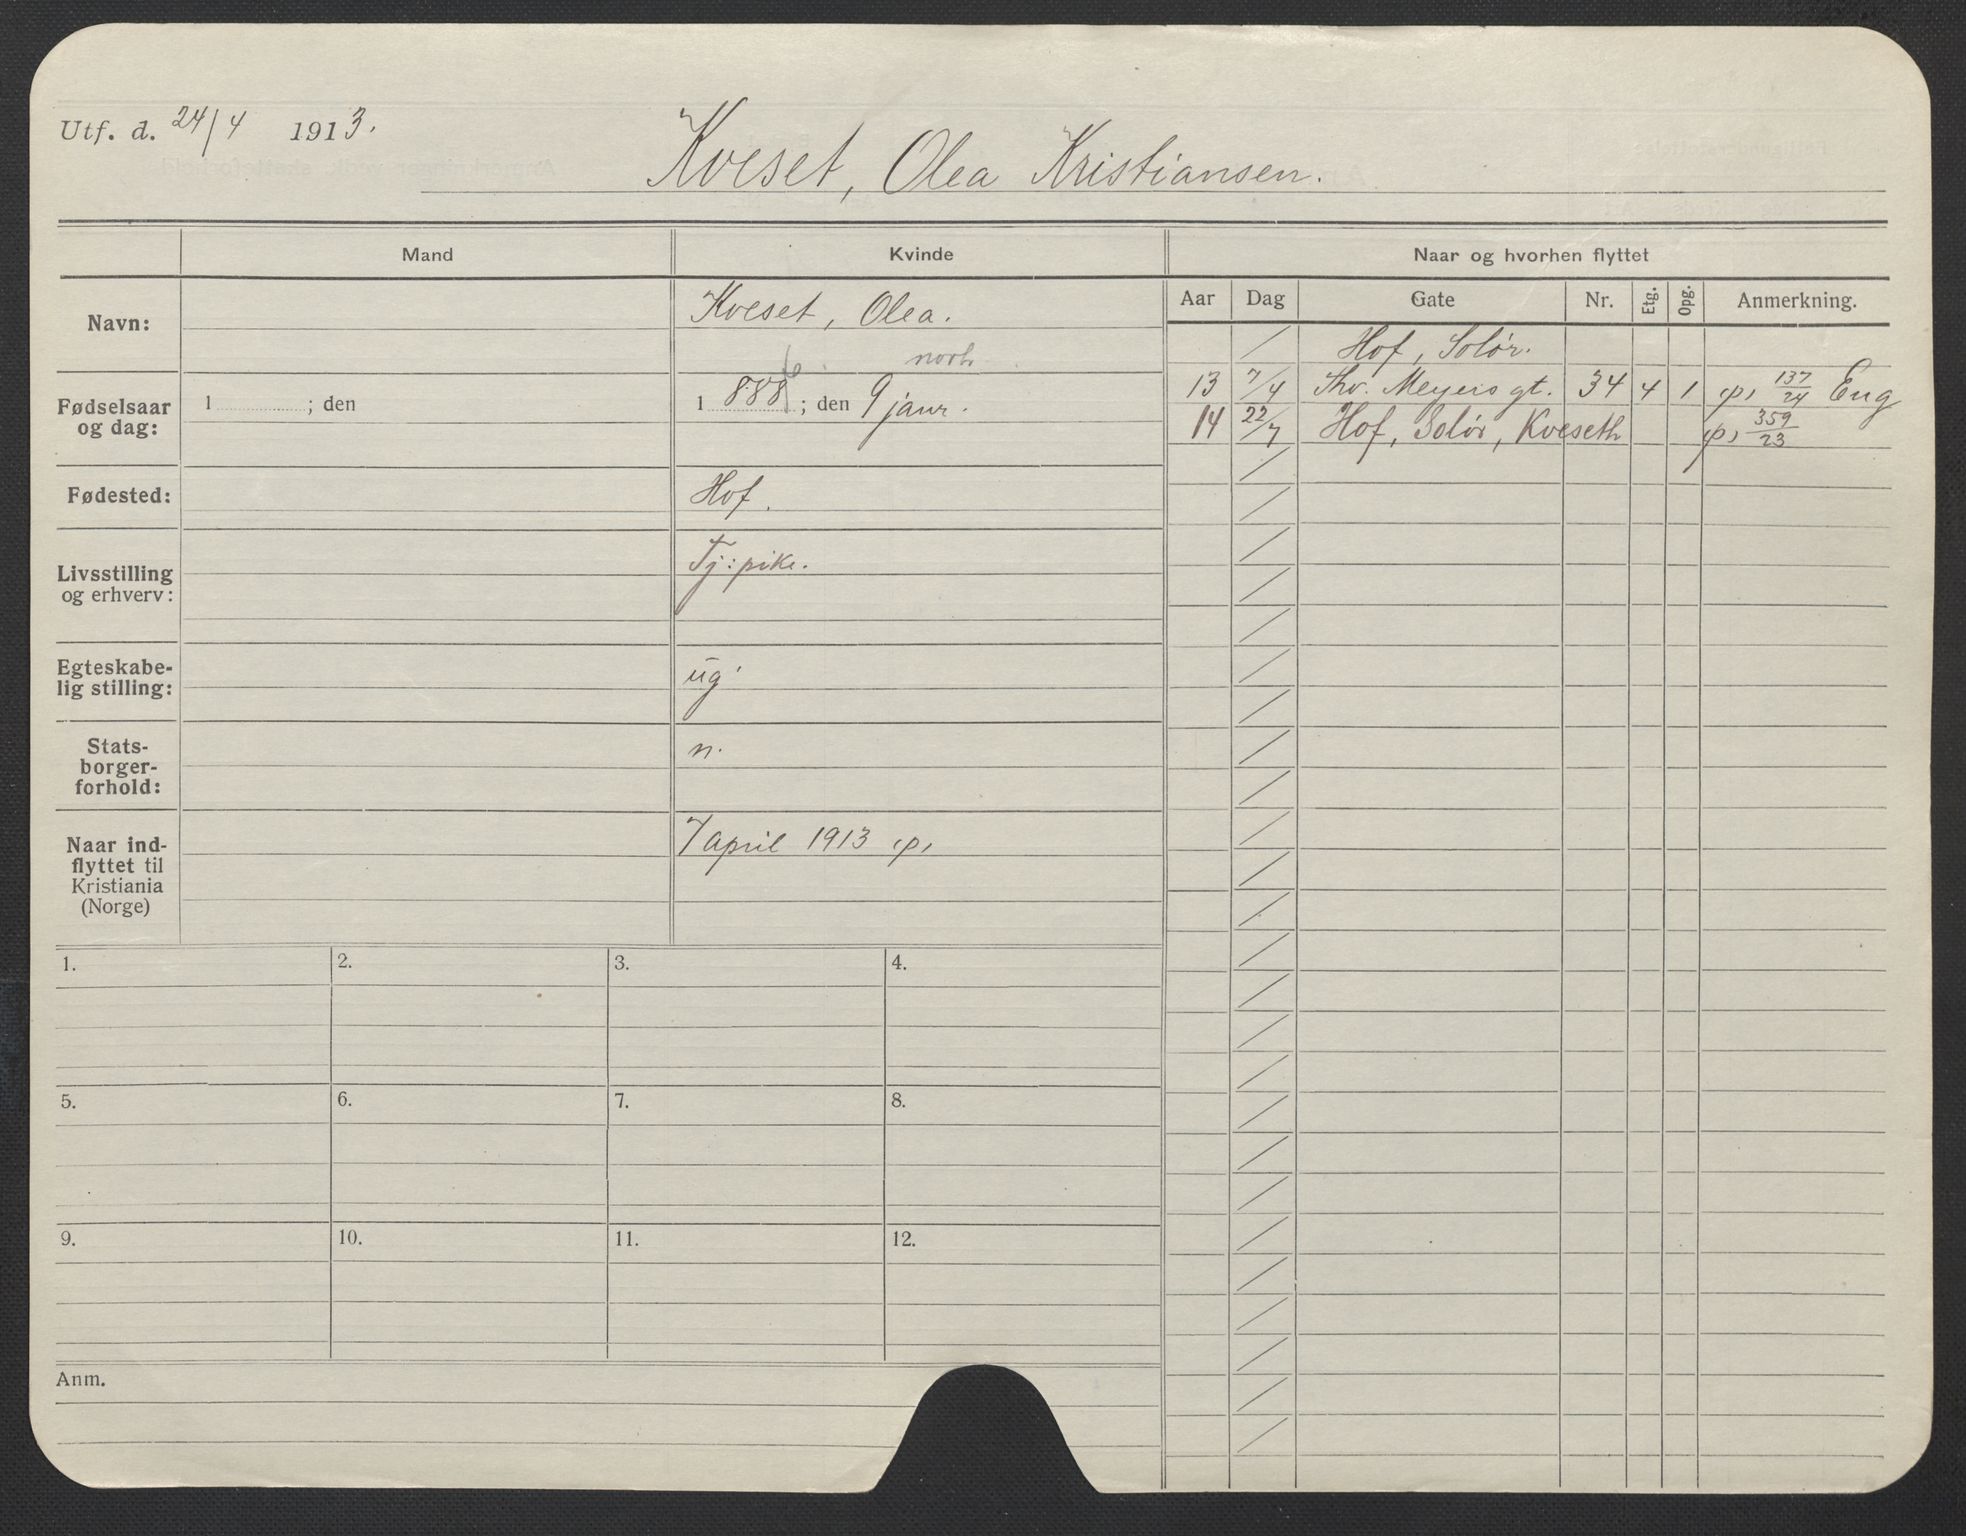 Utf. d. 24/4 1913.
Kveset, Olea Kristiansen.
Mand
Kvinde
Naar og hvorhen flyttet
Aar Dag Gate Nr. Etg. Opg. Anmerkning.
Navn:
Kveset, Olea.
Hof, Solør.
13 7/4 Thv. Meyers gt. 34 4 1 137/24 Eng
14 22/7 Hof, Solør, Kveseth 359/23
Fødselsaar
og dag:
1 ; den
6
1 888 ; den 9 janr.
Fødested:
Hof.
Livsstilling
og erhverv:
Tj: pike.
Egteskabe-
lig stilling:
ug
Stats-
borger-
forhold:
n.
Naar ind-
flyttet til
Kristiania
(Norge)
7 april 1913
1. 2. 3. 4.
5. 6. 7. 8.
9. 10. 11. 12.
Anm.